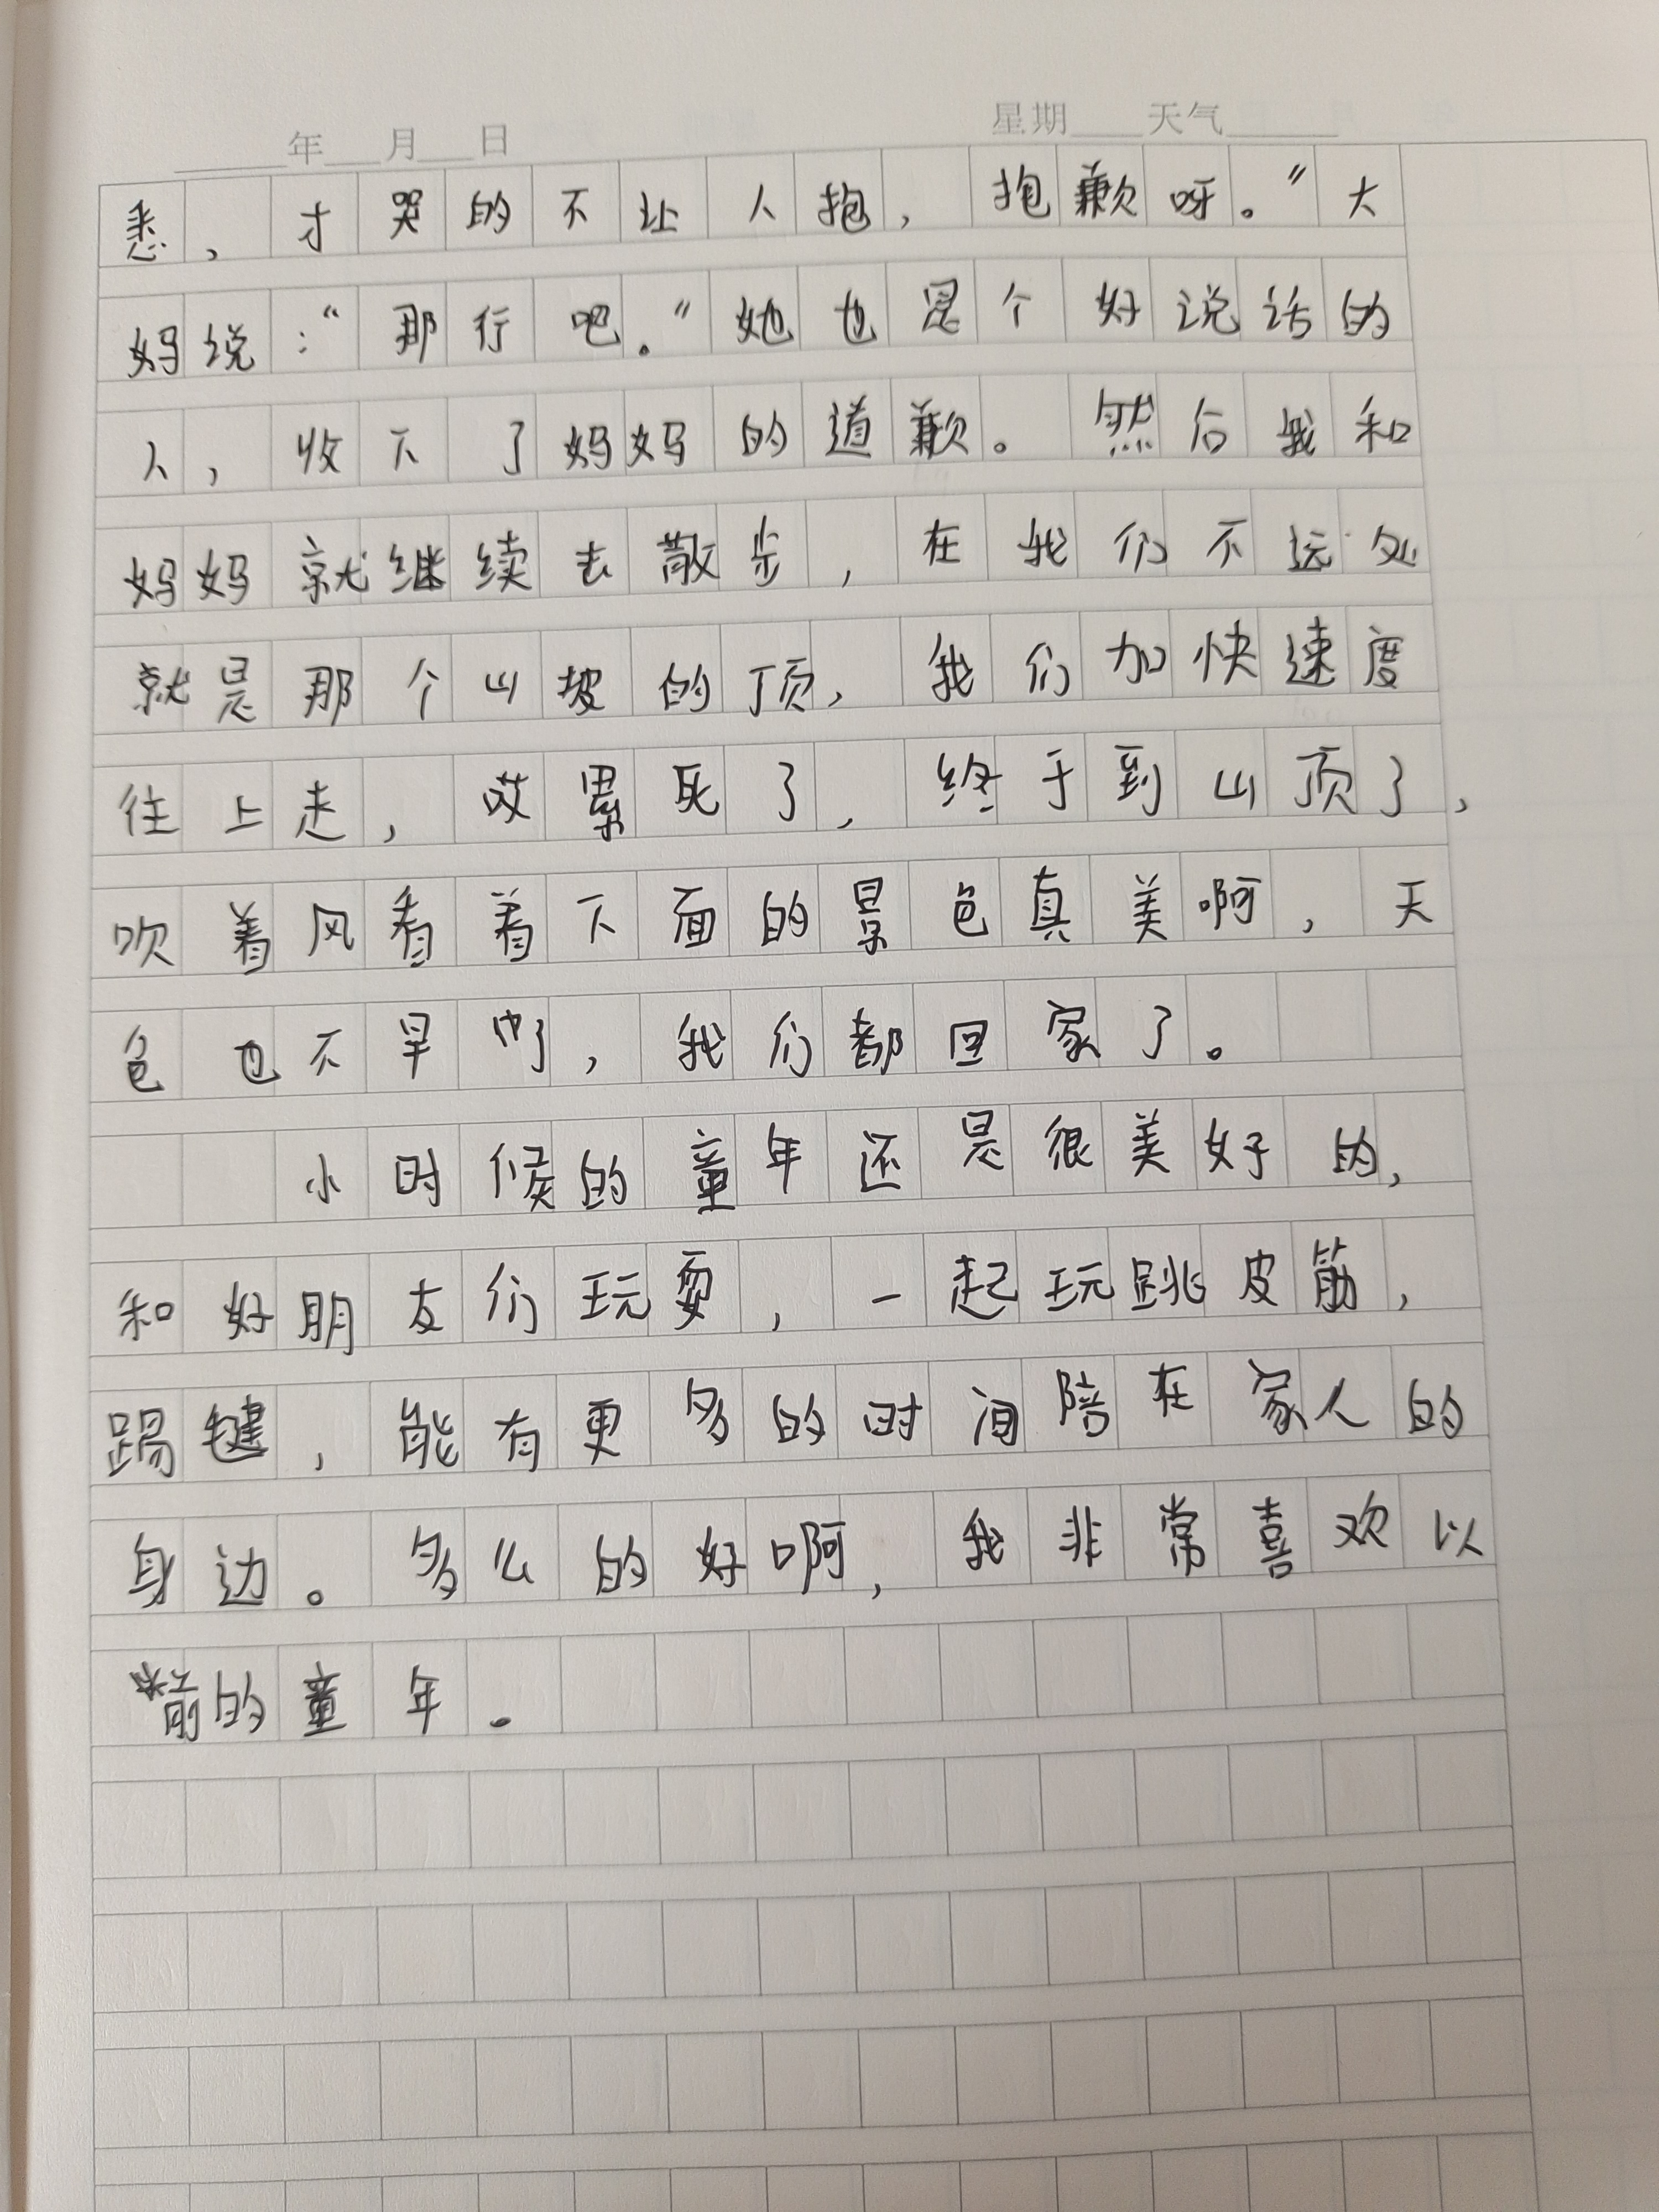 年 月 日 星期 天气
悉，才哭的不让人抱，抱歉呀。”大
妈说：“那行吧。”她也是个好说话的
人，收下了妈妈的道歉。然后我和
妈妈就继续去散步，在我们不远处
就是那个山坡的顶，我们加快速度
往上走，哎累死了，终于到山顶了，
吹着风看着下面的景色真美啊，天
色也不早了，我们都回家了。
小时候的童年还是很美好的，
和好朋友们玩耍，一起玩跳皮筋，
踢毽，能有更多的时间陪在家人的
身边。多么的好啊，我非常喜欢以
前的童年。